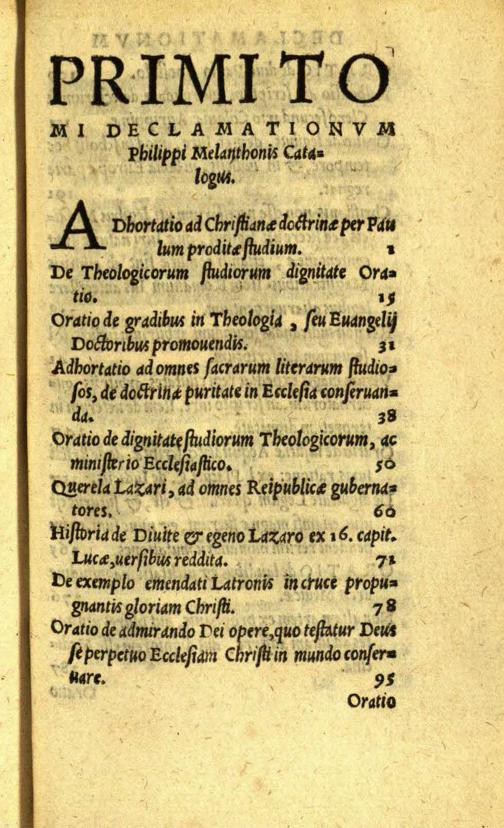 PRIMI TO
MI DECLAMATIONVM
Philippi Melanthonis Cata=
logus.
ADhortatio ad Christianæ doctrinæ per Pau
lum proditæ studium. 1
De Theologicorum studiorum dignitate Ora=
tio. 15
Oratio de gradibus in Theologia, seu Euangelij
Doctoribus promouendis. 31
Adhortatio ad omnes sacrarum literarum studio=
sos, de doctrinæ puritate in Ecclesia conseruan=
da. 38
Oratio de dignitate studiorum Theologicorum, ac
ministerio Ecclesiastico. 50
Querela Lazari, ad omnes Reipublicæ guberna=
tores. 60
Historia de Diuite & egeno Lazaro ex 16. capit.
Lucæ, uersibus reddita. 71
De exemplo emendati Latronis in cruce propu=
gnantis gloriam Christi. 78
Oratio de admirando Dei opere, quo testatur Deus
se perpetuo Ecclesiam Christi in mundo conser=
uare. 95
Oratio